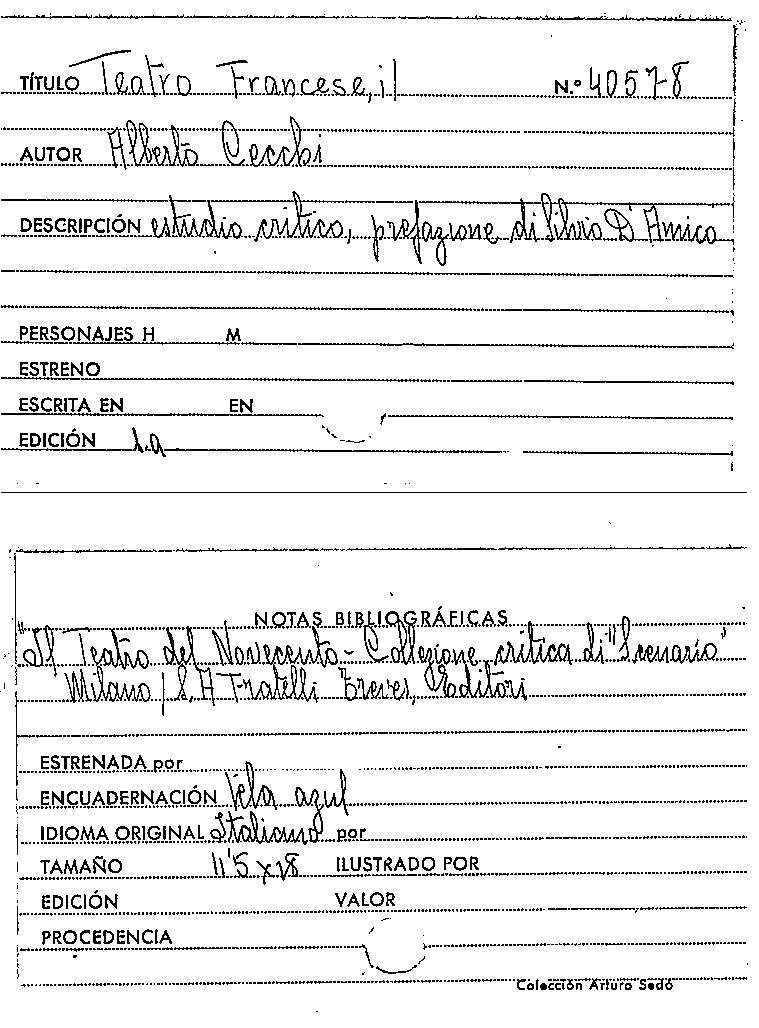 TÍTULO Teatro Francese, il N.º 40578
AUTOR Alberto Cecchi
DESCRIPCIÓN estudio critico, prefazione di Silvio D'Amico
PERSONAJES H M
ESTRENO
ESCRITA EN EN
EDICIÓN 1.a
NOTAS BIBLIOGRÁFICAS
"Il Teatro del Novecento - Collezione critica di "Scenario"
Milano / S. A Fratelli Treves, Editori
ESTRENADA por
ENCUADERNACIÓN Tela azul
IDIOMA ORIGINAL Italiano por
TAMAÑO 11'5 x 18 ILUSTRADO POR
EDICIÓN VALOR
PROCEDENCIA
Colección Arturo Sedó